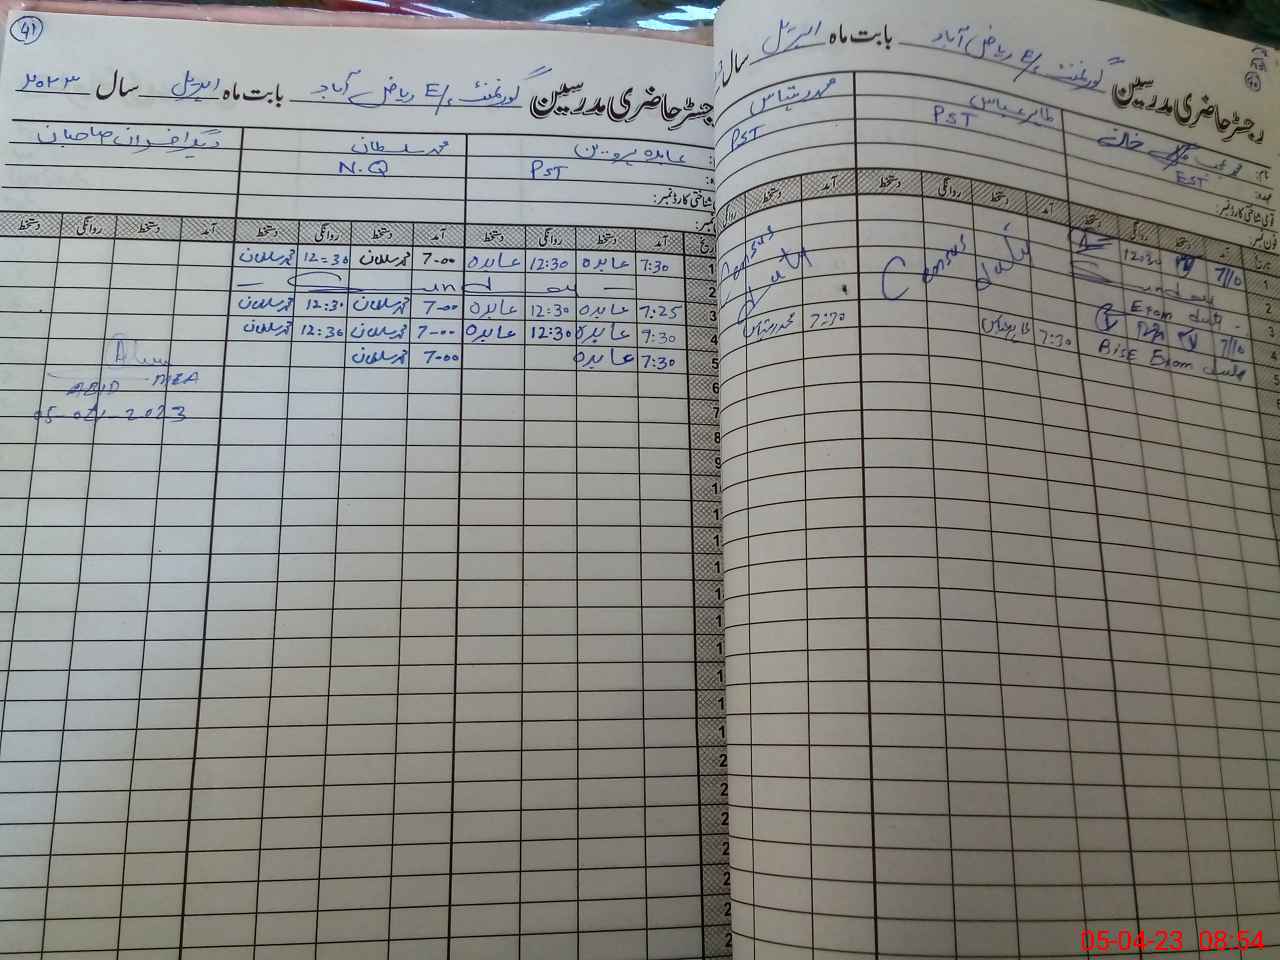 رجسٹر حاضری مدرسین گورنمنٹ E/S ریاض آباد بابت ماہ اپریل سال
نام: محمد خان طاہر عباس محمد رتباس
عہدہ: EST PST PST
قومی شناختی کارڈ نمبر:
فون نمبر:
تاریخ آمد دستخط روانگی دستخط آمد دستخط روانگی دستخط آمد دستخط روانگی
1 7/10 12:30 Census duty Census duty
2 Sunday
3 Exam duty
4 7/10 7:30 طاہر عباس 7:30 محمد رتباس
5 BISE Exam duty
41
رجسٹر حاضری مدرسین گورنمنٹ E/S ریاض آباد بابت ماہ اپریل سال ۲۰۲۳
عابدہ پروین محمد سلطان دیگر افسران صاحبان
PST N.Q
شناختی کارڈ نمبر:
آمد دستخط روانگی دستخط آمد دستخط روانگی دستخط آمد دستخط روانگی دستخط
1 7:30 عابدہ 12:30 عابدہ 7-00 محمد سلطان 12=30 محمد سلطان
2 — Sunday —
3 7:25 عابدہ 12:30 عابدہ 7-00 محمد سلطان 12:30 محمد سلطان
4 7:30 عابدہ 12:30 عابدہ 7-00 محمد سلطان 12:30 محمد سلطان
5 7:30 عابدہ 7-00 محمد سلطان
6
7
05-04-2023
8
9
05-04-23 08:54